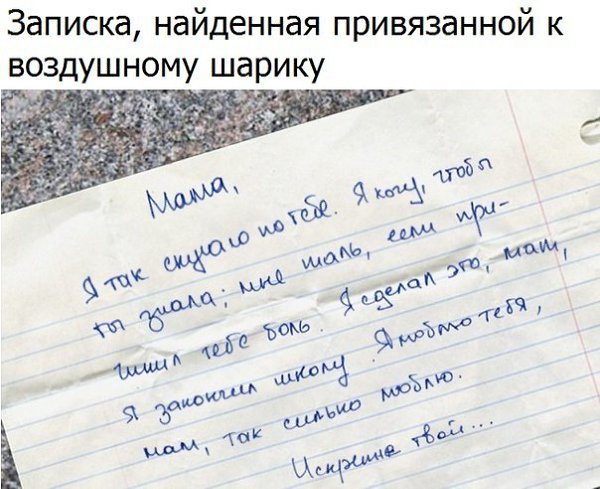 Записка, найденная привязанной к
воздушному шарику
Мама,
Я так скучаю по тебе. Я хочу, чтобы
ты знала; мне жаль, если при-
чинил тебе боль. Я сделал это, мам,
я закончил школу. Я люблю тебя,
мам, так сильно люблю.
Искренне твой...